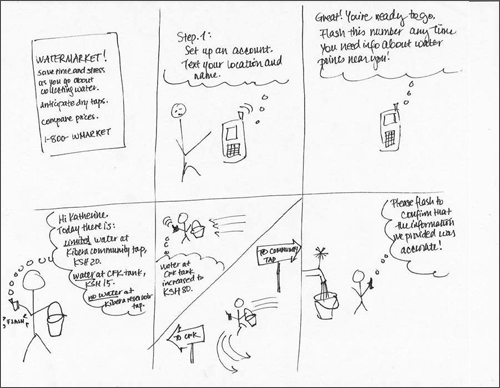 WATERMARKET!
save time and stress
as you go about
collecting water.
anticipate dry taps.
compare prices.
1-800-WMARKET
Step 1:
Set up an account.
Text your location and
name.
Great! You're ready to go.
Flash this number any time
you need info about water
points near you!
Hi Katherine.
Today there is:
limited water at
Kibera community tap,
KSH 20.
water at CFK tank,
KSH 15.
no water at
Kibera reservoir
tap.
FLASH
water at
CFK tank
increased to
KSH 80.
TO COMMUNITY
TAP
TO CFK
Please flash to
confirm that
the information
we provided was
accurate!